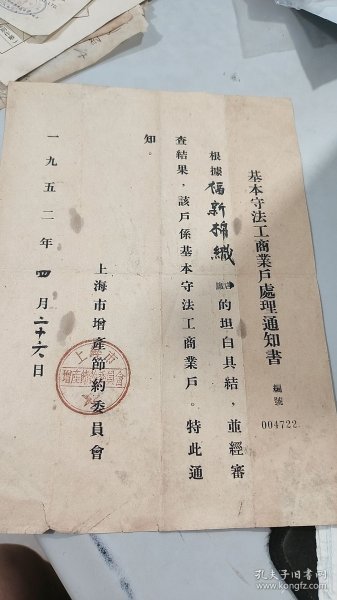 基本守法工商業戶處理通知書
編號
004722
根據福新棉織 的坦白具結，並經審
查結果，該戶係基本守法工商業戶。特此通
知。
上海市增產節約委員會
上海市
增產節約委員會
一九五二年四月二十六日
孔夫子旧书网